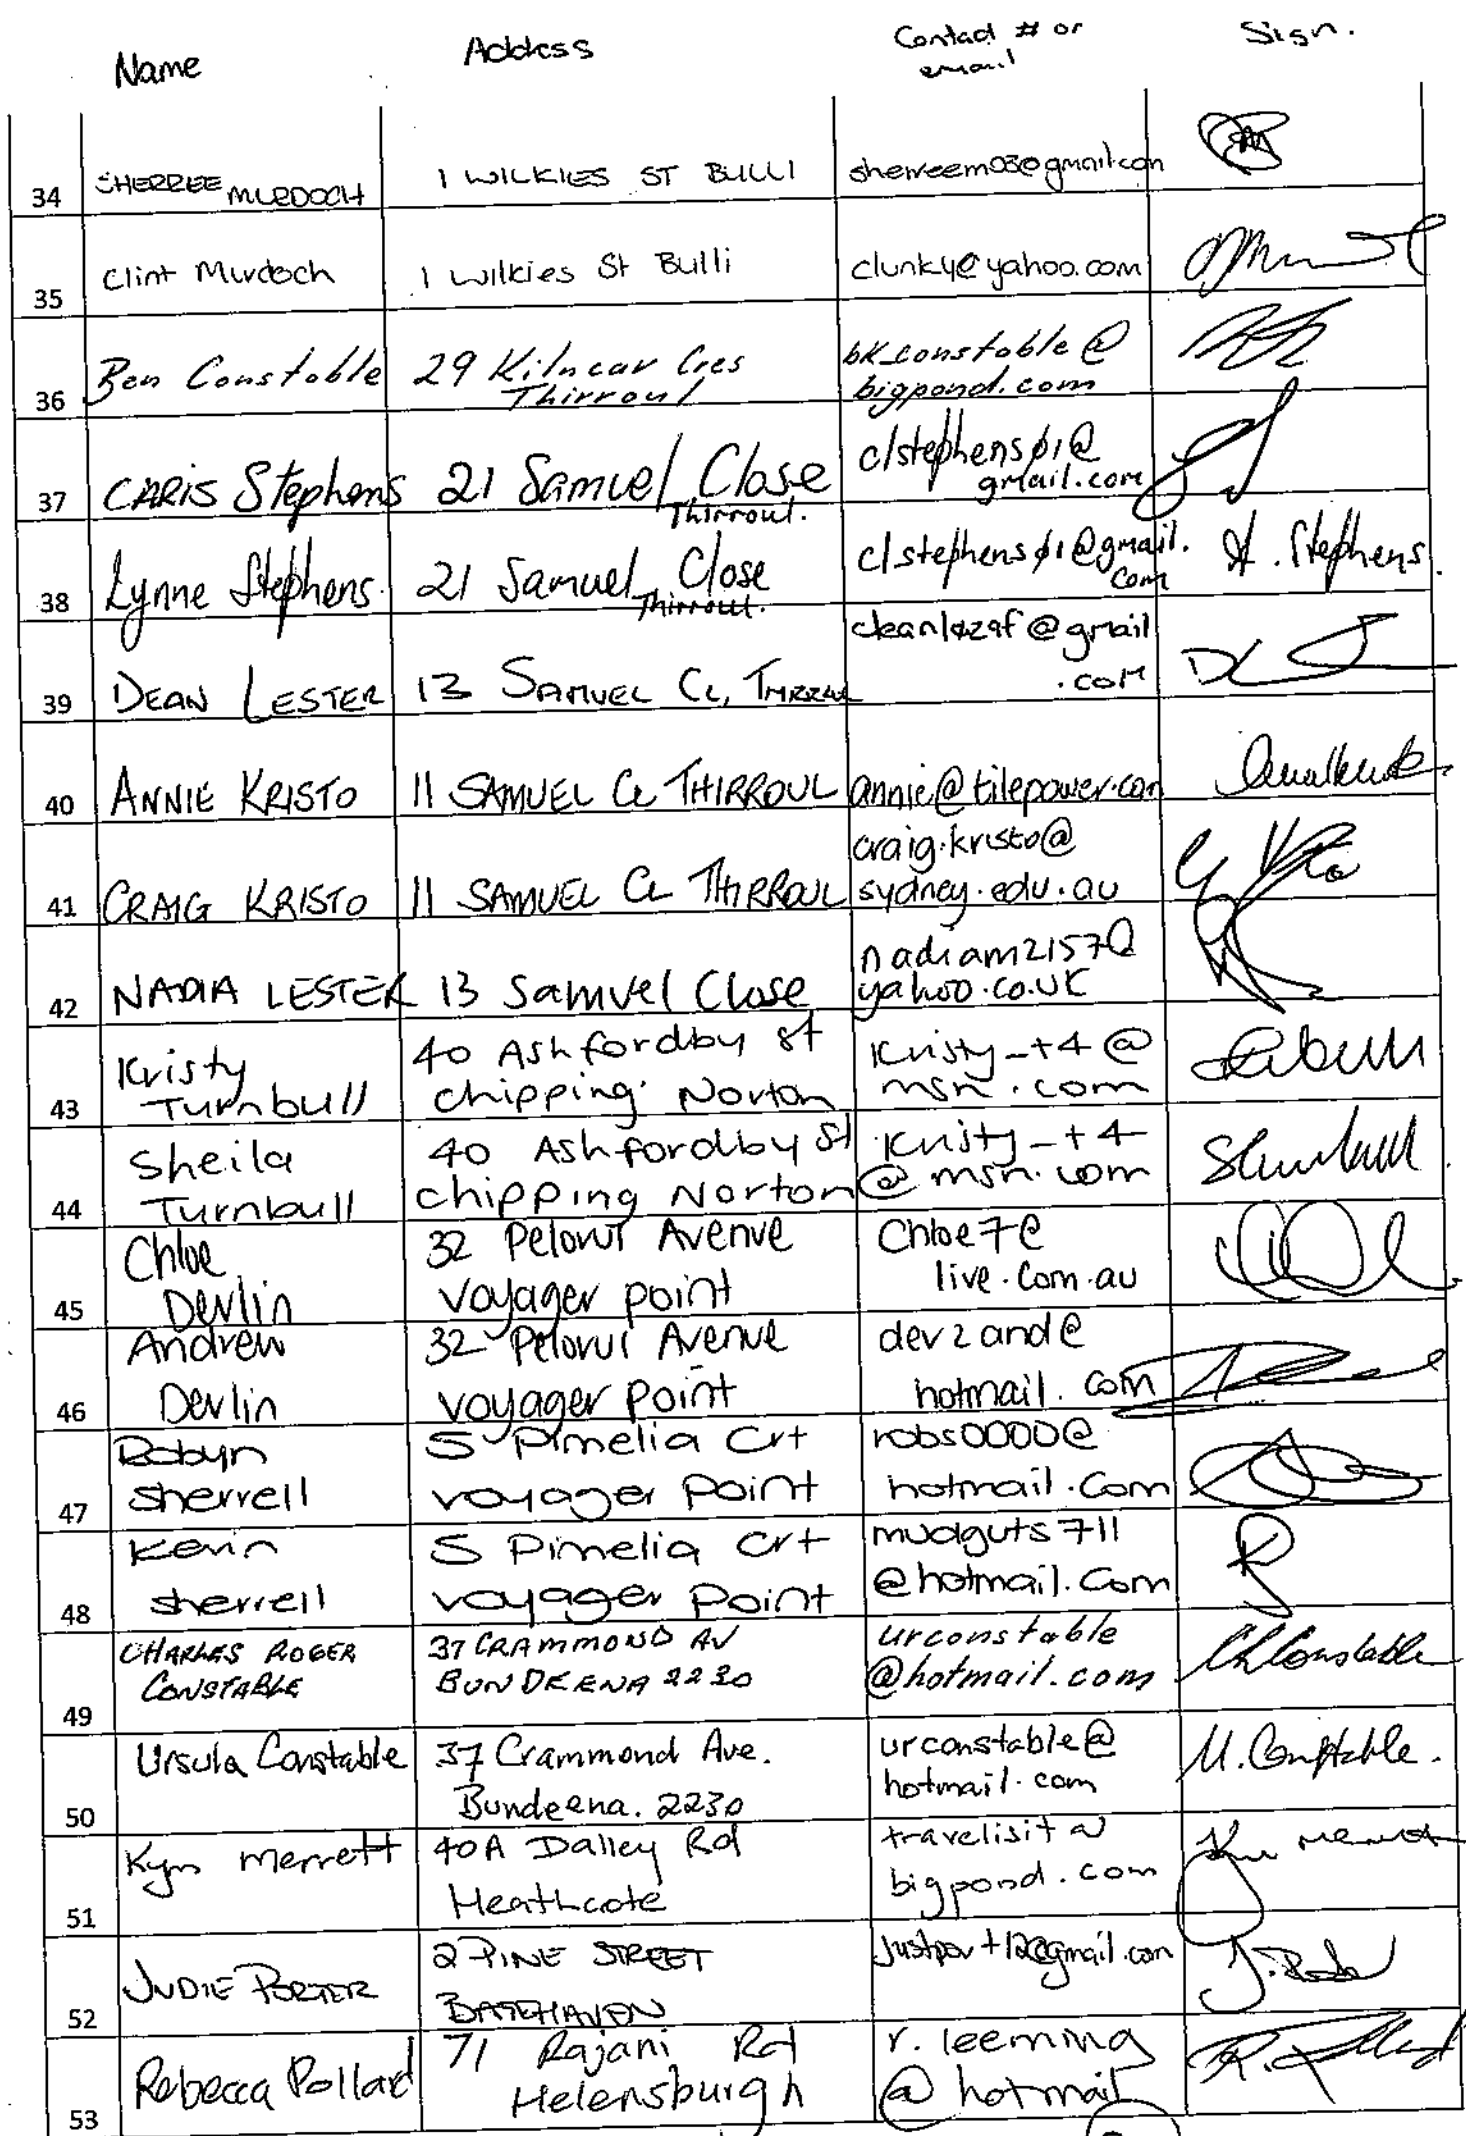 Name Address Contact # or
email Sign.
34 SHERREE MURDOCH 1 WILKIES ST BULLI sherreem03@gmail.com
35 Clint Murdoch 1 Wilkies St Bulli clunky@yahoo.com
36 Ben Constable 29 Kilncar Cres
Thirroul bk_constable@
bigpond.com
37 CARIS Stephens 21 Samuel Close
Thirroul. clstephens01@
gmail.com
38 Lynne Stephens 21 Samuel Close
Thirroul. clstephens01@gmail.
com
39 DEAN LESTER 13 SAMUEL CL, @gmail
.com
40 ANNIE KRISTO 11 SAMUEL CL THIRROUL annie@tilepower.com
41 CRAIG KRISTO 11 SAMUEL CL THIRROUL craig.kristo@
sydney.edu.au
42 NADIA LESTER 13 Samuel Close nadiam2157@
yahoo.co.uk
43 Kristy
Turnbull 40 Ashfordby st
chipping Norton Kristy_t4@
msn.com
44 Sheila
Turnbull 40 Ashfordby st
chipping Norton Kristy_t4
@msn.com
45 Chloe
Devlin 32 Avenue
voyager point Chloe7@
live.com.au
46 Andrew
Devlin 32 Avenue
voyager point dev2and@
hotmail.com
47 Robyn
sherrell 5 Pimelia Crt
voyager Point robs0000@
hotmail.Com
48 Kevin
sherrell 5 Pimelia Crt
voyager Point mudguts711
@hotmail.Com
49 CHARLES ROGER
CONSTABLE 37 CRAMMOND AV
BUNDEENA 2230 urconstable
@hotmail.com
50 Ursula Constable 37 Crammond Ave.
Bundeena. 2230 urconstable@
hotmail.com U. Constable.
51 Kym Merrett 40A Dalley Rd
Heathcote travelisit@
bigpond.com
52 JUDIE PORTER 2 PINE STREET
BATEHAVEN justport12@gmail.com
53 Rebecca Pollard 71 Rajani Rd
Helensburgh r.leeming
@hotmail